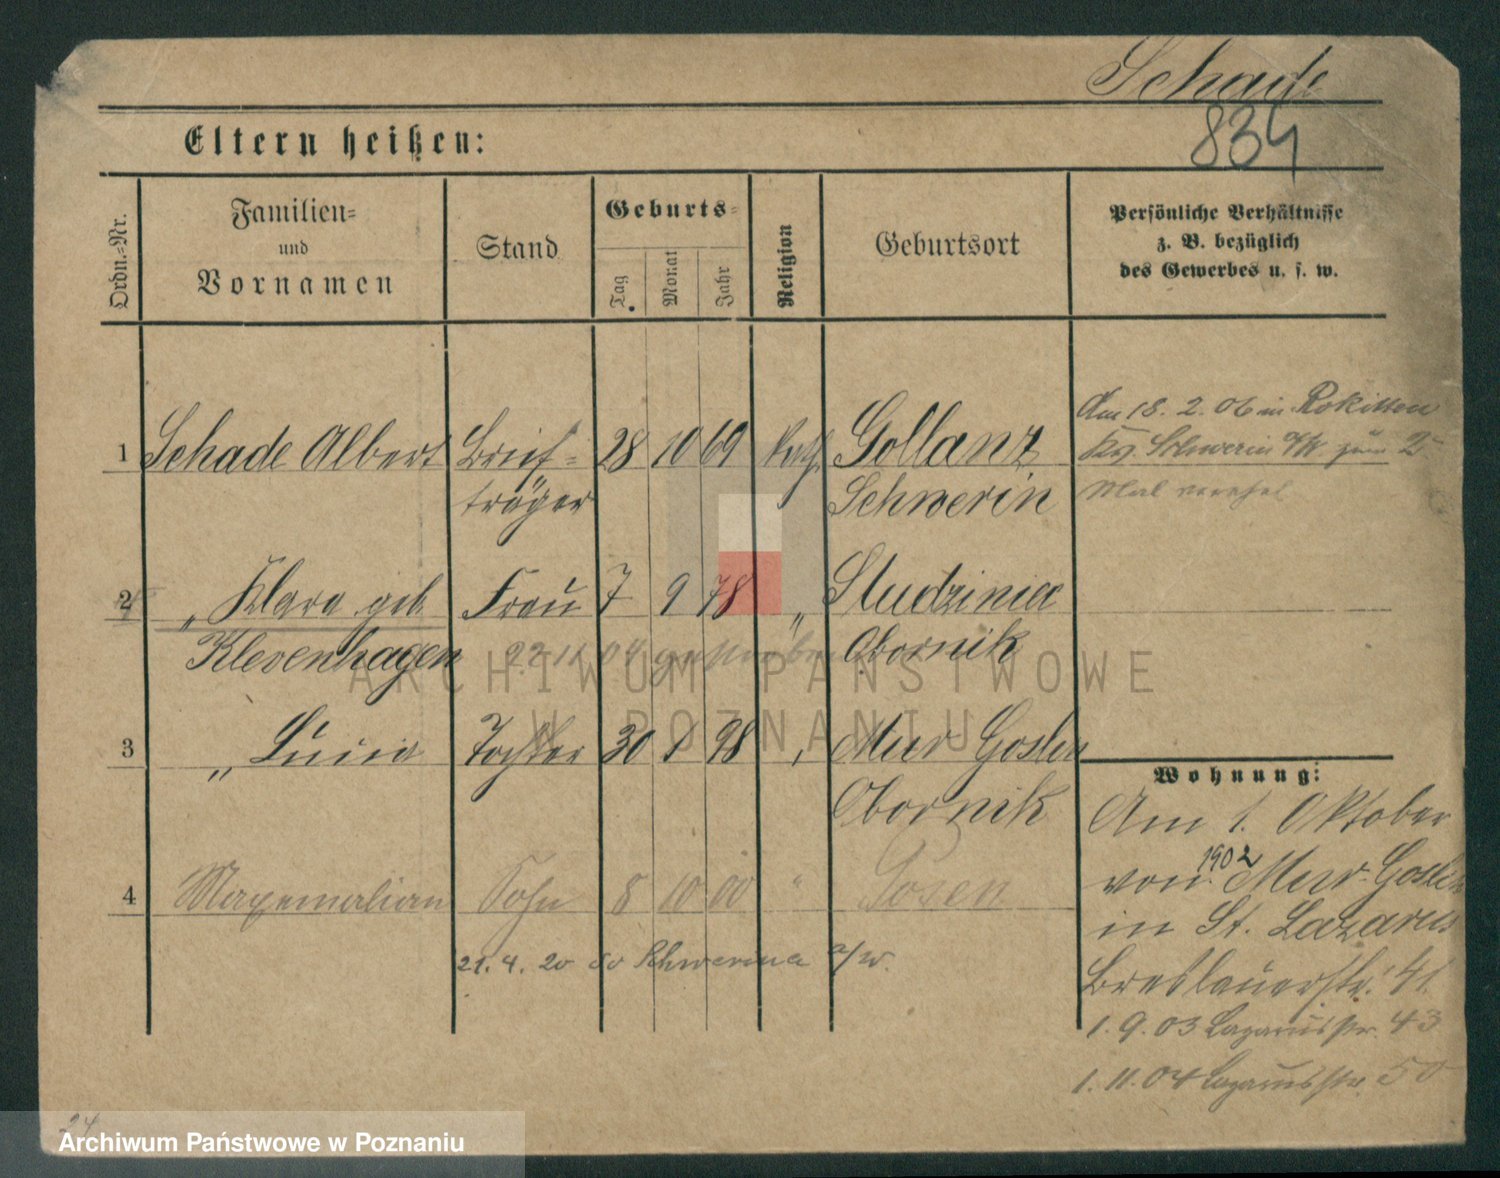 Schade
834
Eltern heißen:
Ordn.-Nr.
Familien-
und
Vornamen
Stand
Geburts-
Tag
Monat
Jahr
Religion
Geburtsort
Persönliche Verhältnisse
z. B. bezüglich
des Gewerbes u. s. w.
1 Schade Albert Brief- 28 10 69 kath. Gollanz
träger Schwerin
Am 18. 2. 06 in Rokitten
Kr. Schwerin a/W. zum 2
Mal verehel
2 " Klara geb. Frau 7 9 78 " Studzinia
Klevenhagen 22 11 04 gestorben Obornik
3 " Lucia Tochter 30 1 98 " Mur Goslin
Obornik
4 Maxemalian Sohn 8 10 00 " Posen
21. 4. 20 Schwerin a/W.
Wohnung:
Am 1. Oktober
1902
von Mur-Goslin
in St. Lazarus
Breslauerstr. 41.
1. 9. 03 Lazarusstr. 43
1. 11. 04 Lazarusstr. 50
24
ARCHIWUM PAŃSTWOWE
W POZNANIU
Archiwum Państwowe w Poznaniu